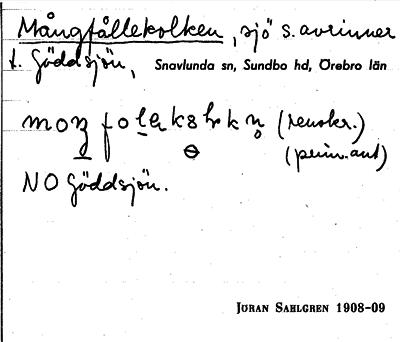 Mångfållekolken, sjö s. avrinner
t. Göddsjön, Snavlunda sn, Sundbo hd, Örebro län
(renskr.)
(prim. ant)
NO Göddsjön.
JÖRAN SAHLGREN 1908-09